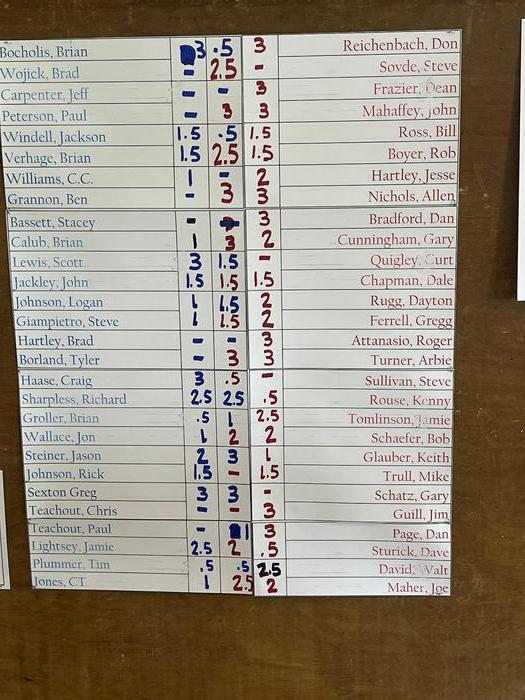 Bocholis, Brian 3 .5 3 Reichenbach, Don
Wojick, Brad - 2.5 - Sovde, Steve
Carpenter, Jeff - - 3 Frazier, Dean
Peterson, Paul - 3 3 Mahaffey, John
Windell, Jackson 1.5 .5 1.5 Ross, Bill
Verhage, Brian 1.5 2.5 1.5 Boyer, Rob
Williams, C.C. 1 - 2 Hartley, Jesse
Grannon, Ben - 3 3 Nichols, Allen
Bassett, Stacey - - 3 Bradford, Dan
Calub, Brian 1 3 2 Cunningham, Gary
Lewis, Scott 3 1.5 - Quigley, Curt
Jackley, John 1.5 1.5 1.5 Chapman, Dale
Johnson, Logan 1 1.5 2 Rugg, Dayton
Giampietro, Steve 1 1.5 2 Ferrell, Gregg
Hartley, Brad - - 3 Attanasio, Roger
Borland, Tyler - 3 3 Turner, Arbie
Haase, Craig 3 .5 - Sullivan, Steve
Sharpless, Richard 2.5 2.5 .5 Rouse, Kenny
Groller, Brian .5 1 2.5 Tomlinson, Jamie
Wallace, Jon 1 2 2 Schaefer, Bob
Steiner, Jason 2 3 1 Glauber, Keith
Johnson, Rick 1.5 - 1.5 Trull, Mike
Sexton Greg 3 3 - Schatz, Gary
Teachout, Chris - - 3 Guill, Jim
Teachout, Paul - 1 3 Page, Dan
Lightsey, Jamie 2.5 2 .5 Sturick, Dave
Plummer, Tim .5 .5 2.5 David, Walt
Jones, CT 1 2.5 2 Maher, Joe